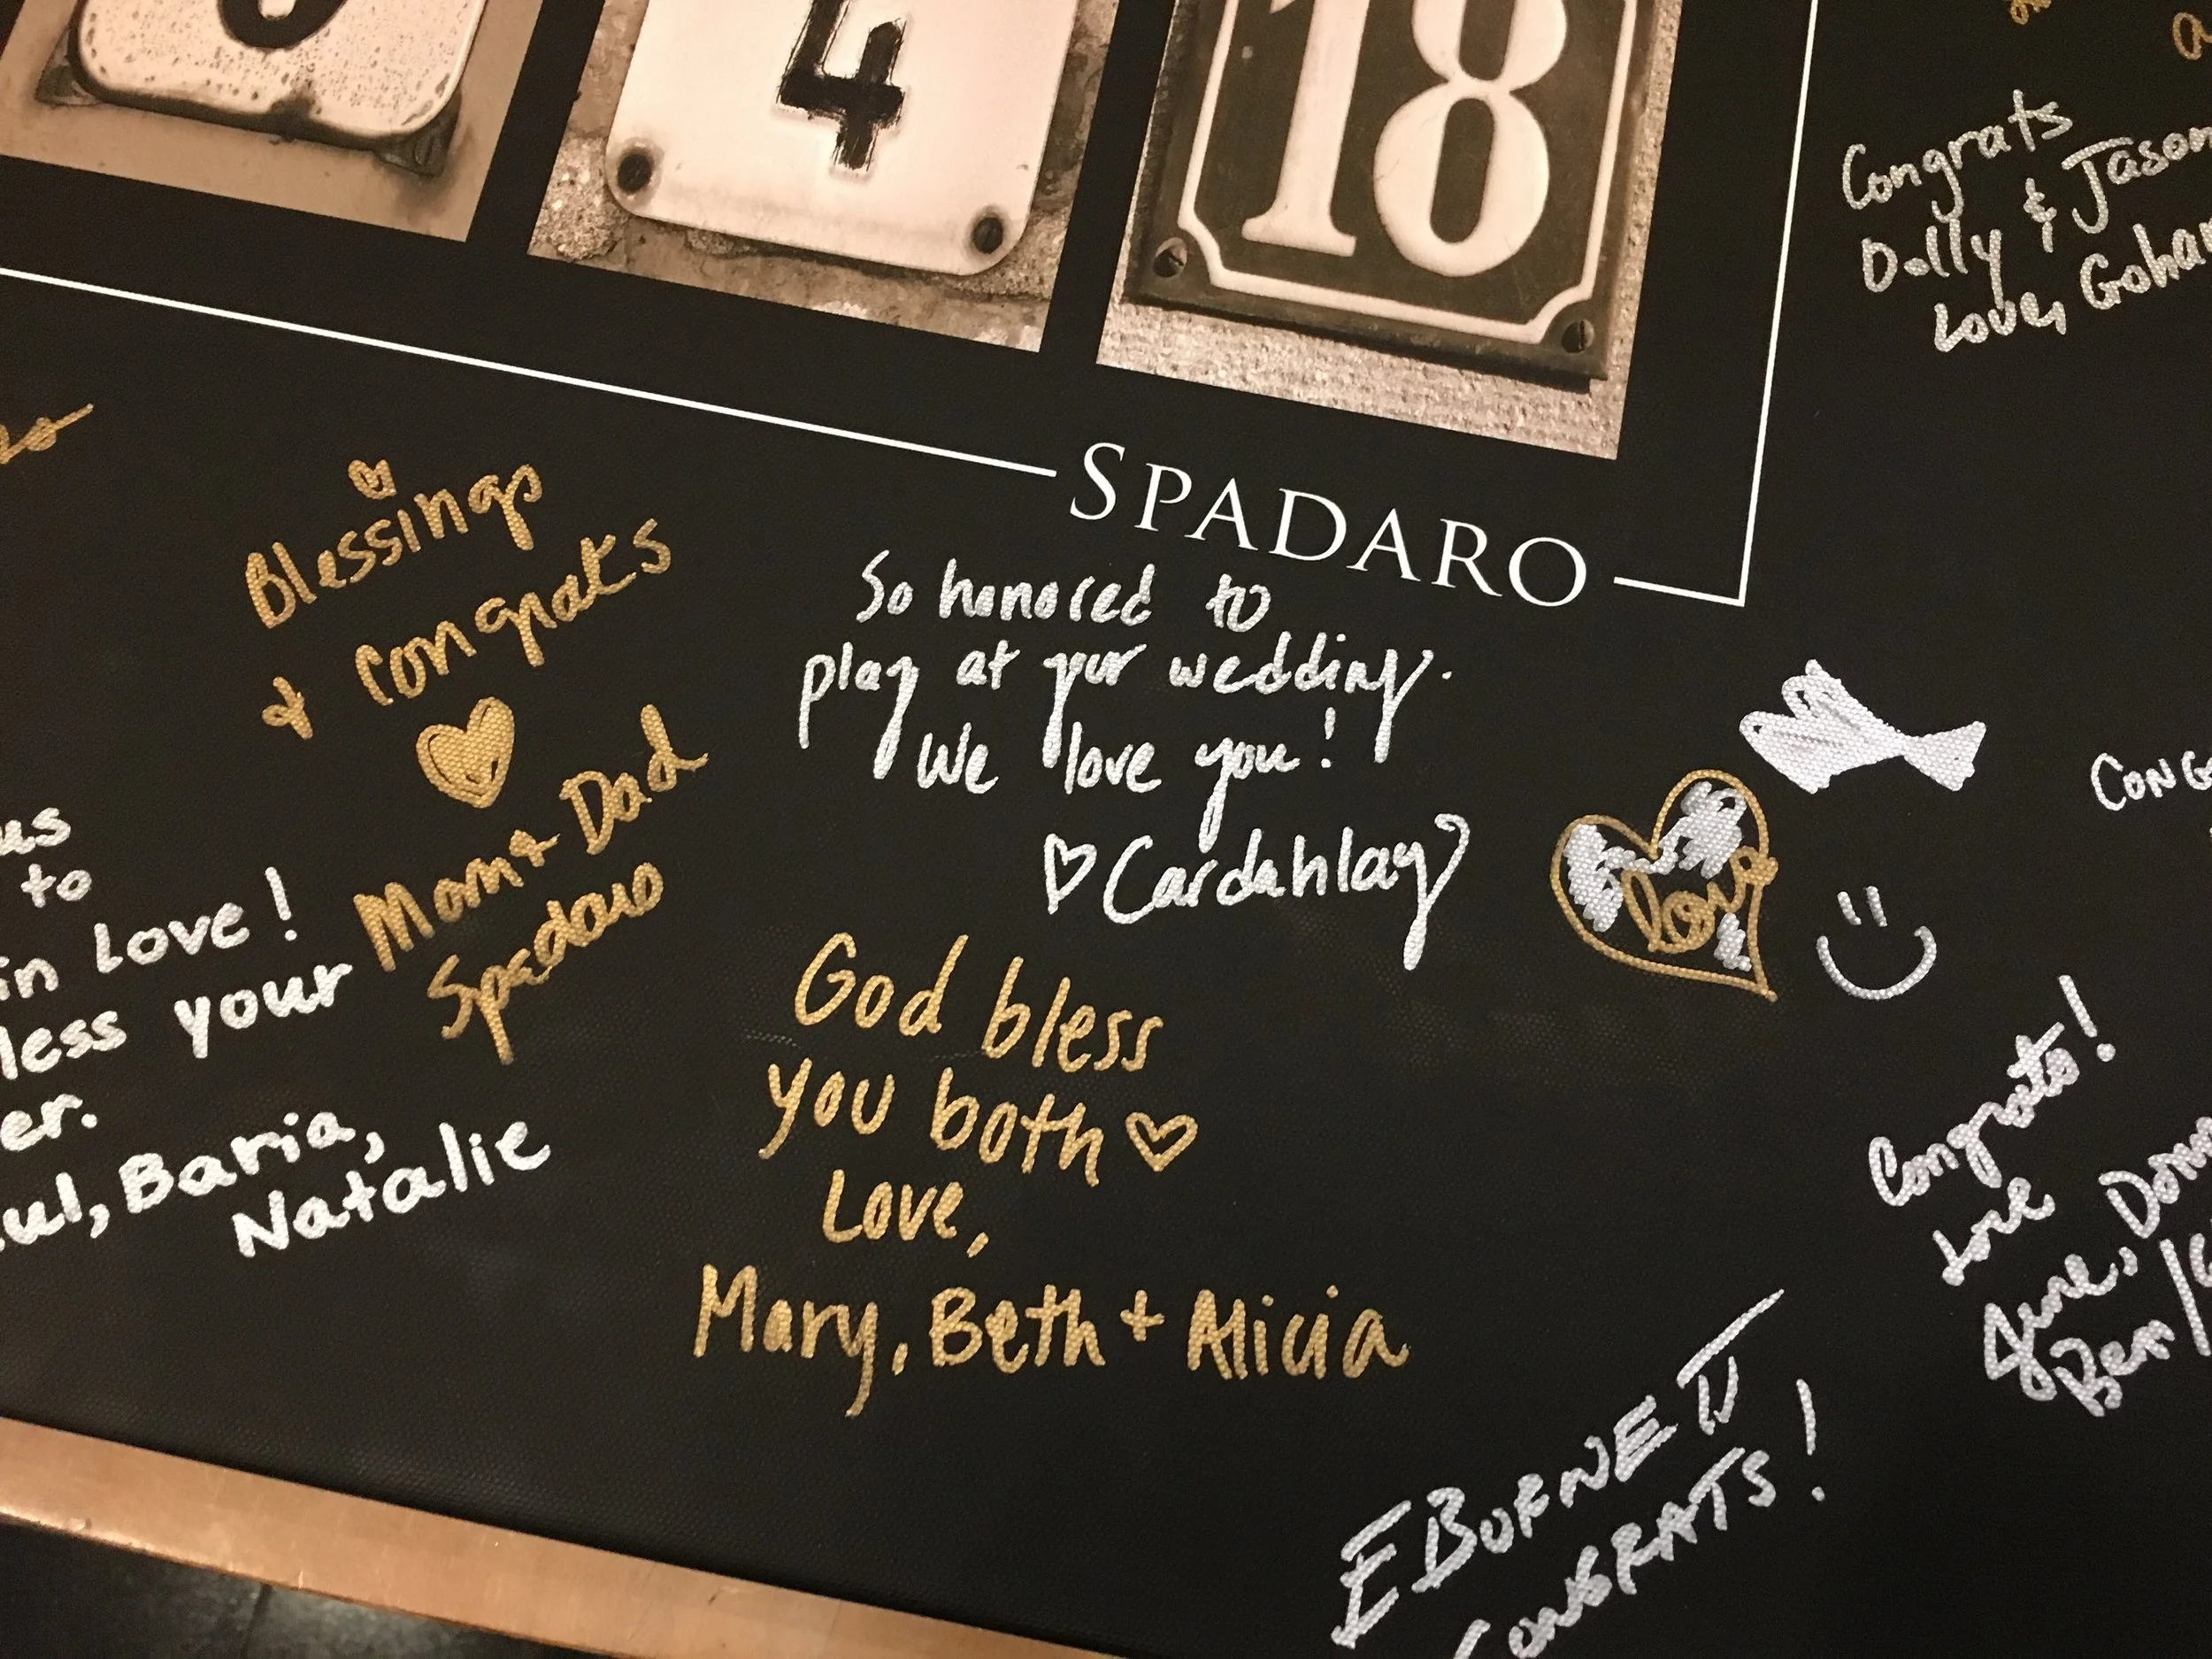 4
18
SPADARO
Congrats
Dolly & Jason
Love,
Blessings
+ Congrats
Mom + Dad
Spadaro
So honored to
play at your wedding.
We love you!
♡ Cardahlay
love
us
to
in Love!
your
Baria,
Natalie
God bless
you both ♡
Love,
Mary, Beth + Alicia
Congrats!
Love
June,
Ben/
EBURNETT
CONGRATS!